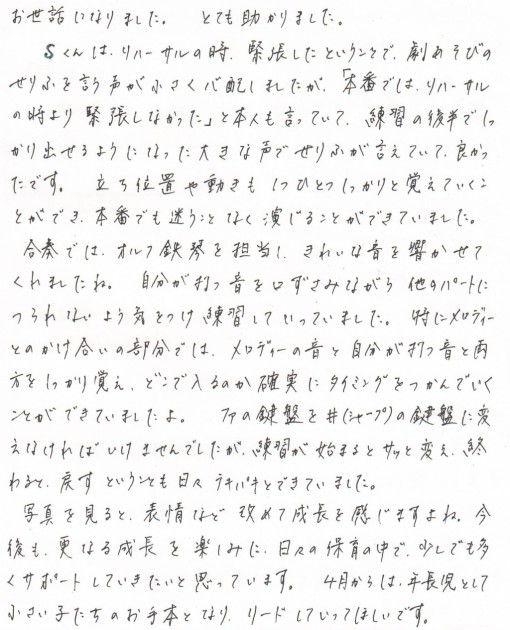 お世話になりました。 とても助かりました。
Sくんは、リハーサルの時、緊張したということで、劇あそびの
せりふを言う声が小さく心配しましたが、「本番では、リハーサル
の時より緊張しなかった」と本人も言っていて、練習の後半でしっ
かり出せるようになった大きな声でせりふが言えていて、良かっ
たです。 立ち位置や動きも1つひとつしっかりと覚えていくこ
とができ、本番でも迷うことなく演じることができていました。
合奏では、オルフ鉄琴を担当し、きれいな音を響かせて
くれましたね。 自分が打つ音を口ずさみながら他のパートに
つられないよう気をつけ練習していっていました。 特にメロディー
とのかけ合いの部分では、メロディーの音と自分が打つ音と両
方をしっかり覚え、どこで入るのか確実にタイミングをつかんでいく
ことができていましたよ。 ファの鍵盤を#(シャープ)の鍵盤に変
えなければいけませんでしたが、練習が始まるとサッと変え、終
わると、戻すということも日々テキパキとできていました。
写真を見ると、表情など改めて成長を感じますよね。今
後も、更なる成長を楽しみに、日々の保育の中で、少しでも多
くサポートしていきたいと思っています。 4月からは、年長児として
小さい子たちのお手本となり、リードしていってほしいです。